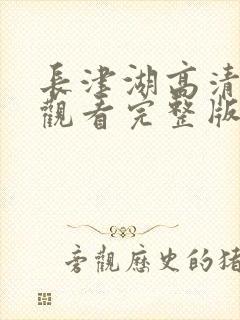 長津湖高清
觀看完整版
旁觀歷史的猪